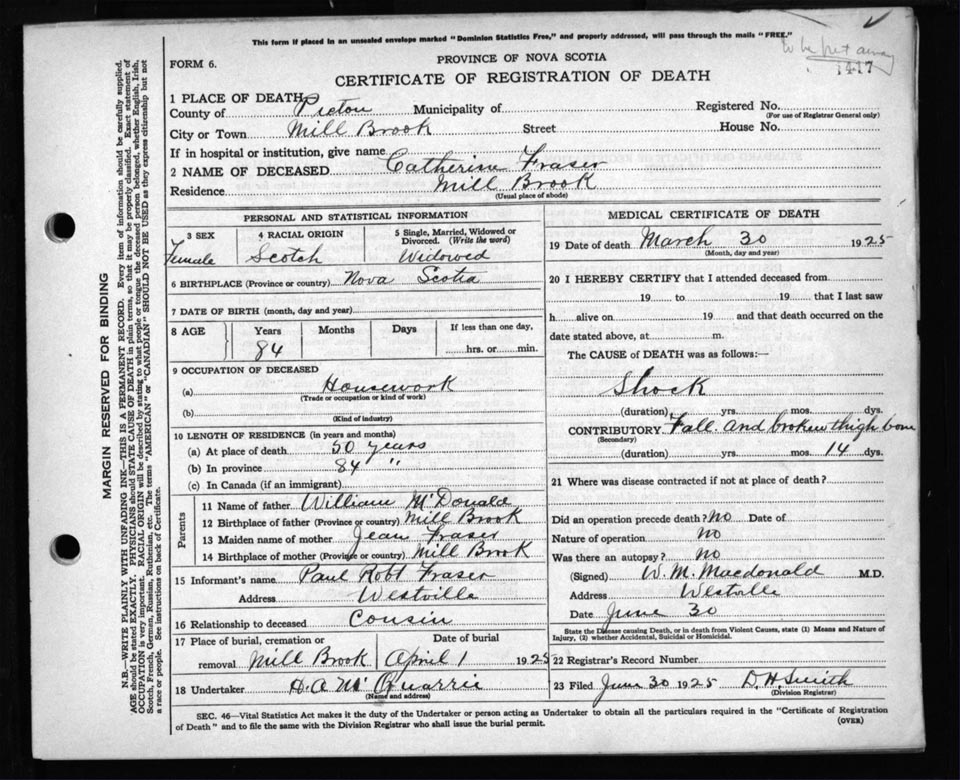 This form if placed in an unsealed envelope marked "Dominion Statistics Free," and properly addressed, will pass through the mails "FREE."
to be put away
1417
FORM 6.
PROVINCE OF NOVA SCOTIA
CERTIFICATE OF REGISTRATION OF DEATH
MARGIN RESERVED FOR BINDING
N.B.—WRITE PLAINLY WITH UNFADING INK—THIS IS A PERMANENT RECORD. Every item of information should be carefully supplied.
AGE should be stated EXACTLY. PHYSICIANS should STATE CAUSE OF DEATH in plain terms, so that it may be properly classified. Exact statement of
OCCUPATION is very important. RACIAL ORIGIN will be described by stating to what people or tongue the deceased person belonged, whether English, Irish,
Scotch, French, German, Russian, Ruthenian, etc. The terms "AMERICAN" or "CANADIAN" SHOULD NOT BE USED as they express citizenship but not
a race or people. See instructions on back of Certificate.
1 PLACE OF DEATH
County of Pictou Municipality of Registered No.
(For use of Registrar General only)
City or Town Mill Brook Street House No.
If in hospital or institution, give name
2 NAME OF DECEASED Catherine Fraser
Residence Mill Brook
(Usual place of abode)
PERSONAL AND STATISTICAL INFORMATION
3 SEX 4 RACIAL ORIGIN 5 Single, Married, Widowed or Divorced. (Write the word)
Female Scotch Widowed
6 BIRTHPLACE (Province or country) Nova Scotia
7 DATE OF BIRTH (month, day and year)
8 AGE Years Months Days If less than one day,
84 hrs. or min.
9 OCCUPATION OF DECEASED
(a) Housework
(Trade or occupation or kind of work)
(b)
(Kind of industry)
10 LENGTH OF RESIDENCE (in years and months)
(a) At place of death 50 years
(b) In province 84 "
(c) In Canada (if an immigrant)
Parents
11 Name of father William McDonald
12 Birthplace of father (Province or country) Mill Brook
13 Maiden name of mother Jean Fraser
14 Birthplace of mother (Province or country) Mill Brook
15 Informant's name Paul Robt Fraser
Address Westville
16 Relationship to deceased Cousin
17 Place of burial, cremation or removal Date of burial
Mill Brook April 1 1925
18 Undertaker H. A. McQuarrie
(Name and address)
MEDICAL CERTIFICATE OF DEATH
19 Date of death March 30 1925
(Month, day and year)
20 I HEREBY CERTIFY that I attended deceased from
19 to 19 that I last saw
h alive on 19 and that death occurred on the
date stated above, at m.
The CAUSE of DEATH was as follows:—
Shock
(duration) yrs. mos. dys.
CONTRIBUTORY Fall and broken thigh bone
(Secondary)
(duration) yrs. mos. 14 dys.
21 Where was disease contracted if not at place of death?
Did an operation precede death? No Date of
Nature of operation no
Was there an autopsy? no
(Signed) W. M. Macdonald M.D.
Address Westville
Date June 30
State the Disease causing Death, or in death from Violent Causes, state (1) Means and Nature of
Injury, (2) whether Accidental, Suicidal or Homicidal.
22 Registrar's Record Number
23 Filed June 30 1925 D. H. Smith
(Division Registrar)
SEC. 46—Vital Statistics Act makes it the duty of the Undertaker or person acting as Undertaker to obtain all the particulars required in the "Certificate of Registration
of Death" and to file the same with the Division Registrar who shall issue the burial permit. (OVER)